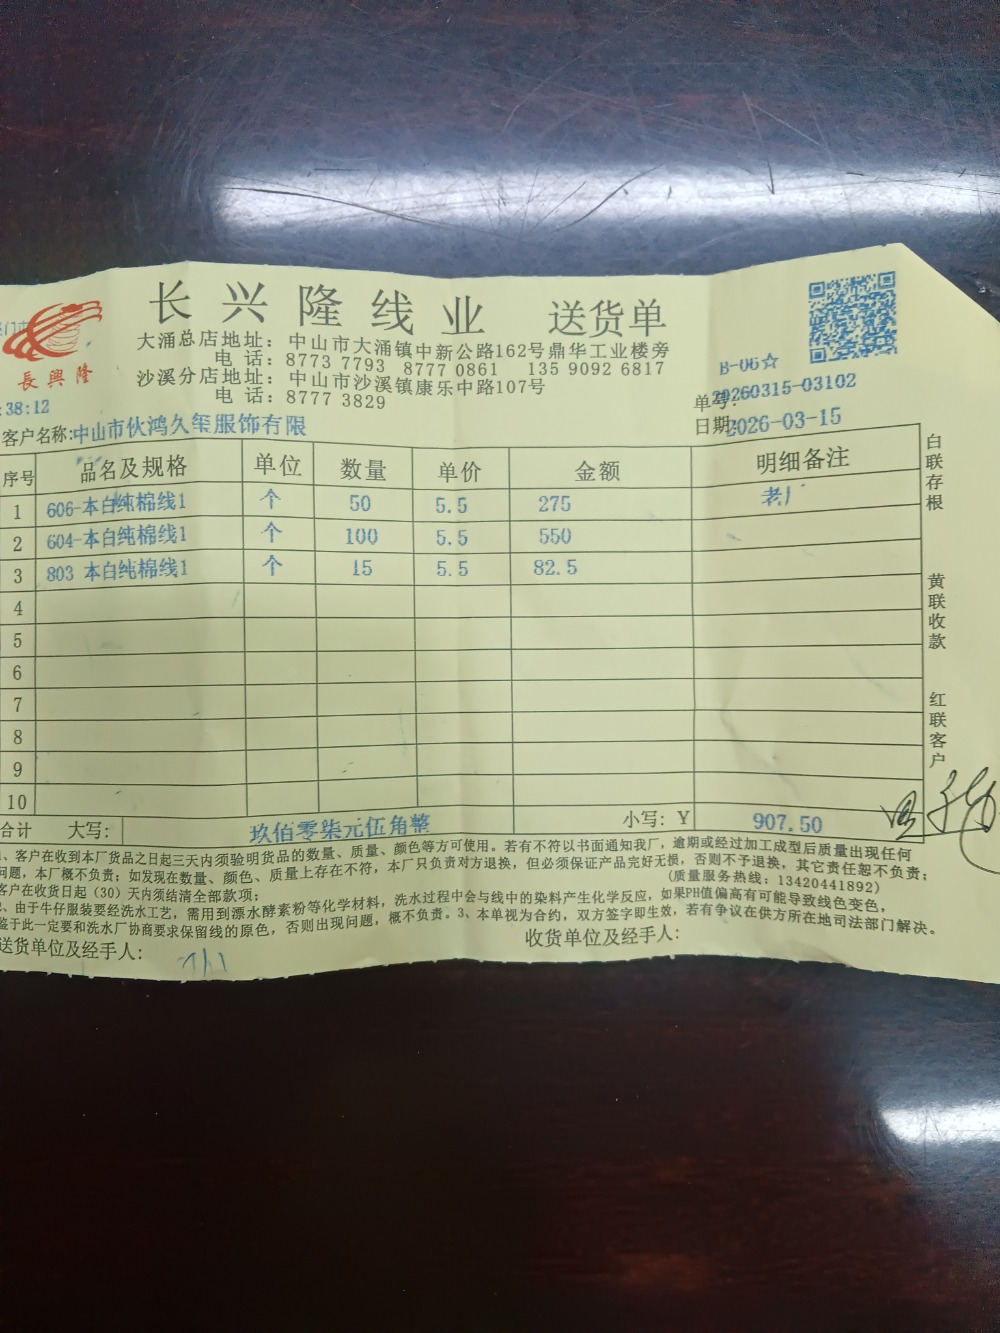 长兴隆线业 送货单
長興隆
大涌总店地址：中山市大涌镇中新公路162号鼎华工业楼旁
电 话：8773 7793 8777 0861 135 9092 6817
沙溪分店地址：中山市沙溪镇康乐中路107号
电 话：8777 3829
B-06☆
单号:20260315-03102
:38:12
日期:2026-03-15
客户名称:中山市伙鸿久玺服饰有限
序号 品名及规格 单位 数量 单价 金额 明细备注
1 606-本白纯棉线1 个 50 5.5 275 老厂
2 604-本白纯棉线1 个 100 5.5 550
3 803 本白纯棉线1 个 15 5.5 82.5
4
5
6
7
8
9
10
合计 大写: 玖佰零柒元伍角整 小写: Y 907.50
白联存根
黄联收款
红联客户
、客户在收到本厂货品之日起三天内须验明货品的数量、质量、颜色等方可使用。若有不符以书面通知我厂，逾期或经过加工成型后质量出现任何
问题，本厂概不负责；如发现在数量、颜色、质量上存在不符，本厂只负责对方退换，但必须保证产品完好无损，否则不予退换，其它责任恕不负责；
客户在收货日起（30）天内须结清全部款项； （质量服务热线：13420441892）
2、由于牛仔服装要经洗水工艺，需用到漂水酵素粉等化学材料，洗水过程中会与线中的染料产生化学反应，如果PH值偏高有可能导致线色变色，
鉴于此一定要和洗水厂协商要求保留线的原色，否则出现问题，概不负责。3、本单视为合约，双方签字即生效，若有争议在供方所在地司法部门解决。
送货单位及经手人: 收货单位及经手人: